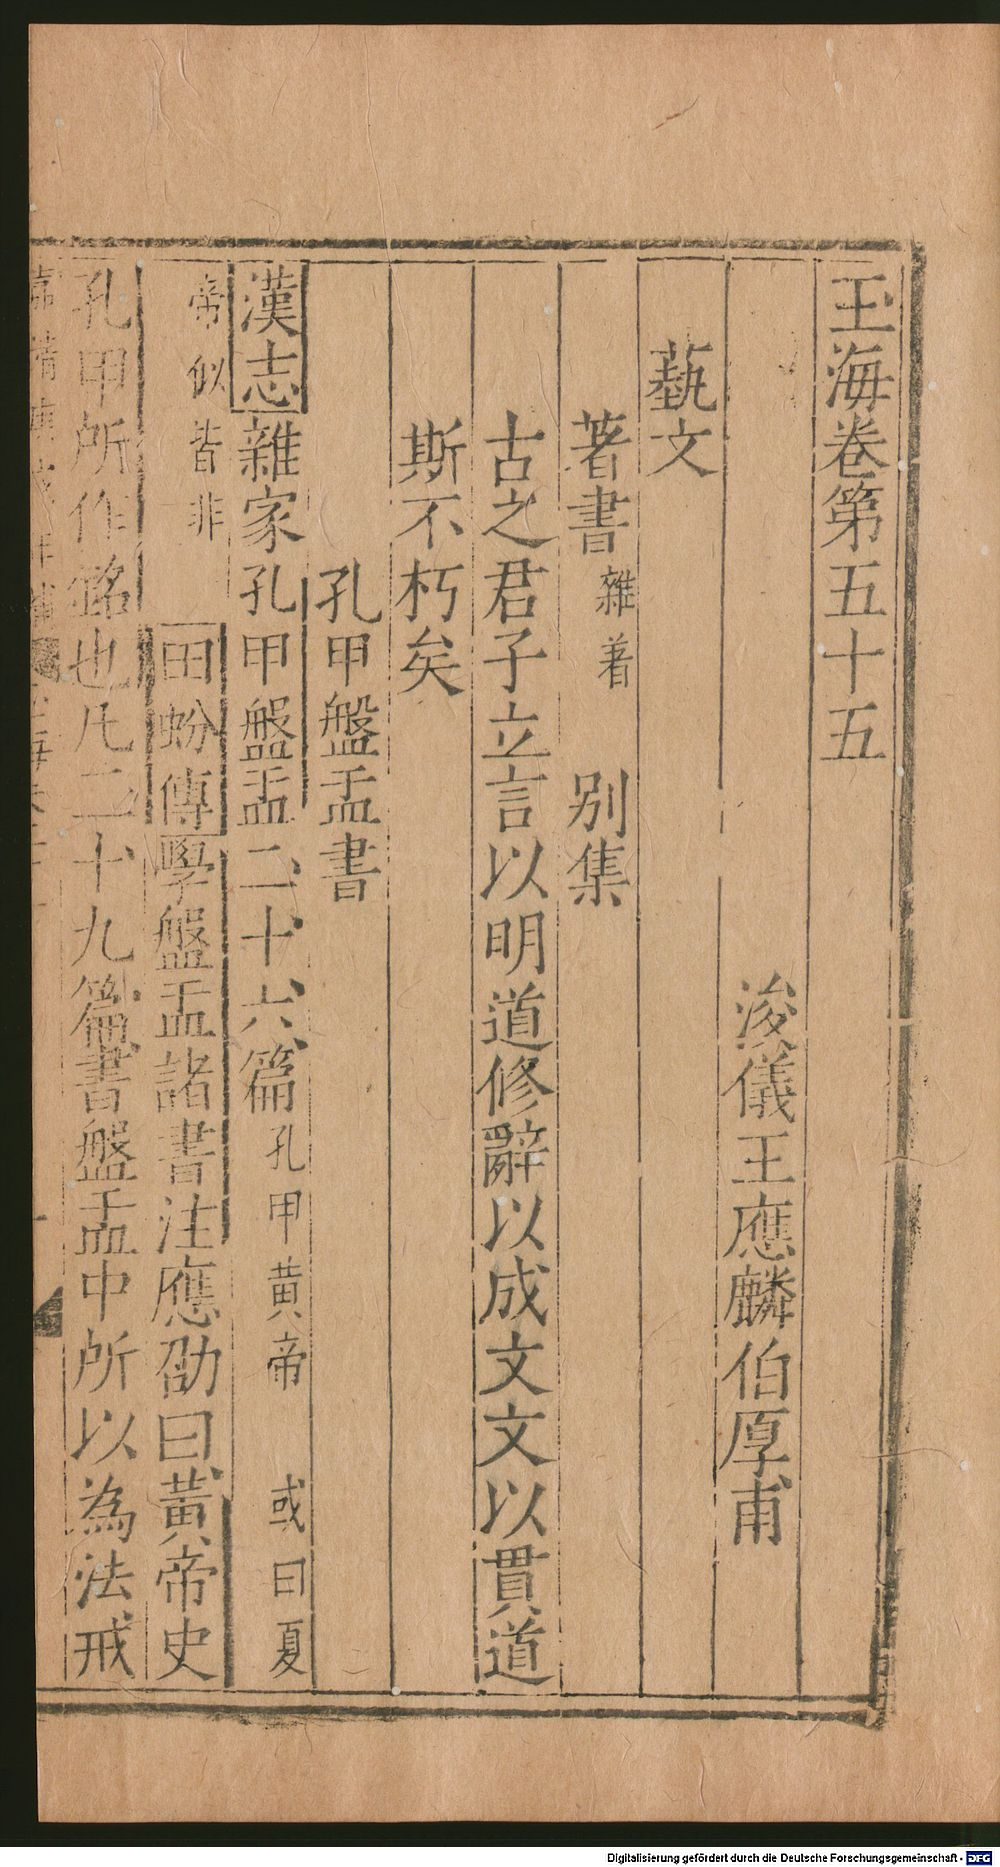 玉海卷第五十五
浚儀王應麟伯厚甫
藝文
著書 雜著 別集
古之君子立言以明道修辭以成文文以貫道
斯不朽矣
孔甲盤盂書
漢志雜家孔甲盤盂二十六篇 孔甲黃帝 或曰夏
帝似皆非 田蚡傳學盤盂諸書注應劭曰黃帝史
孔甲所作銘也凡二十九篇書盤盂中所以為法戒
Digitalisierung gefördert durch die Deutsche Forschungsgemeinschaft - DFG